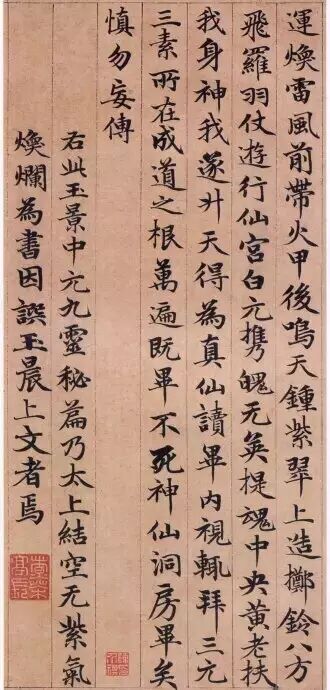 運煥雷風前帶火甲後嗚天鍾紫翠上造擲鈴八方
飛羅羽仗遊行仙宮白亢攜魄无英提魂中央黃老扶
我身神我遂升天得為真仙讀畢內視輒拜三元
三素所在成道之根萬遍既畢不死神仙洞房畢矣
慎勿妄傳
右此玉景中亢九靈秘篇乃太上結空无紫氣
煥爛為書因誤玉晨上文者焉